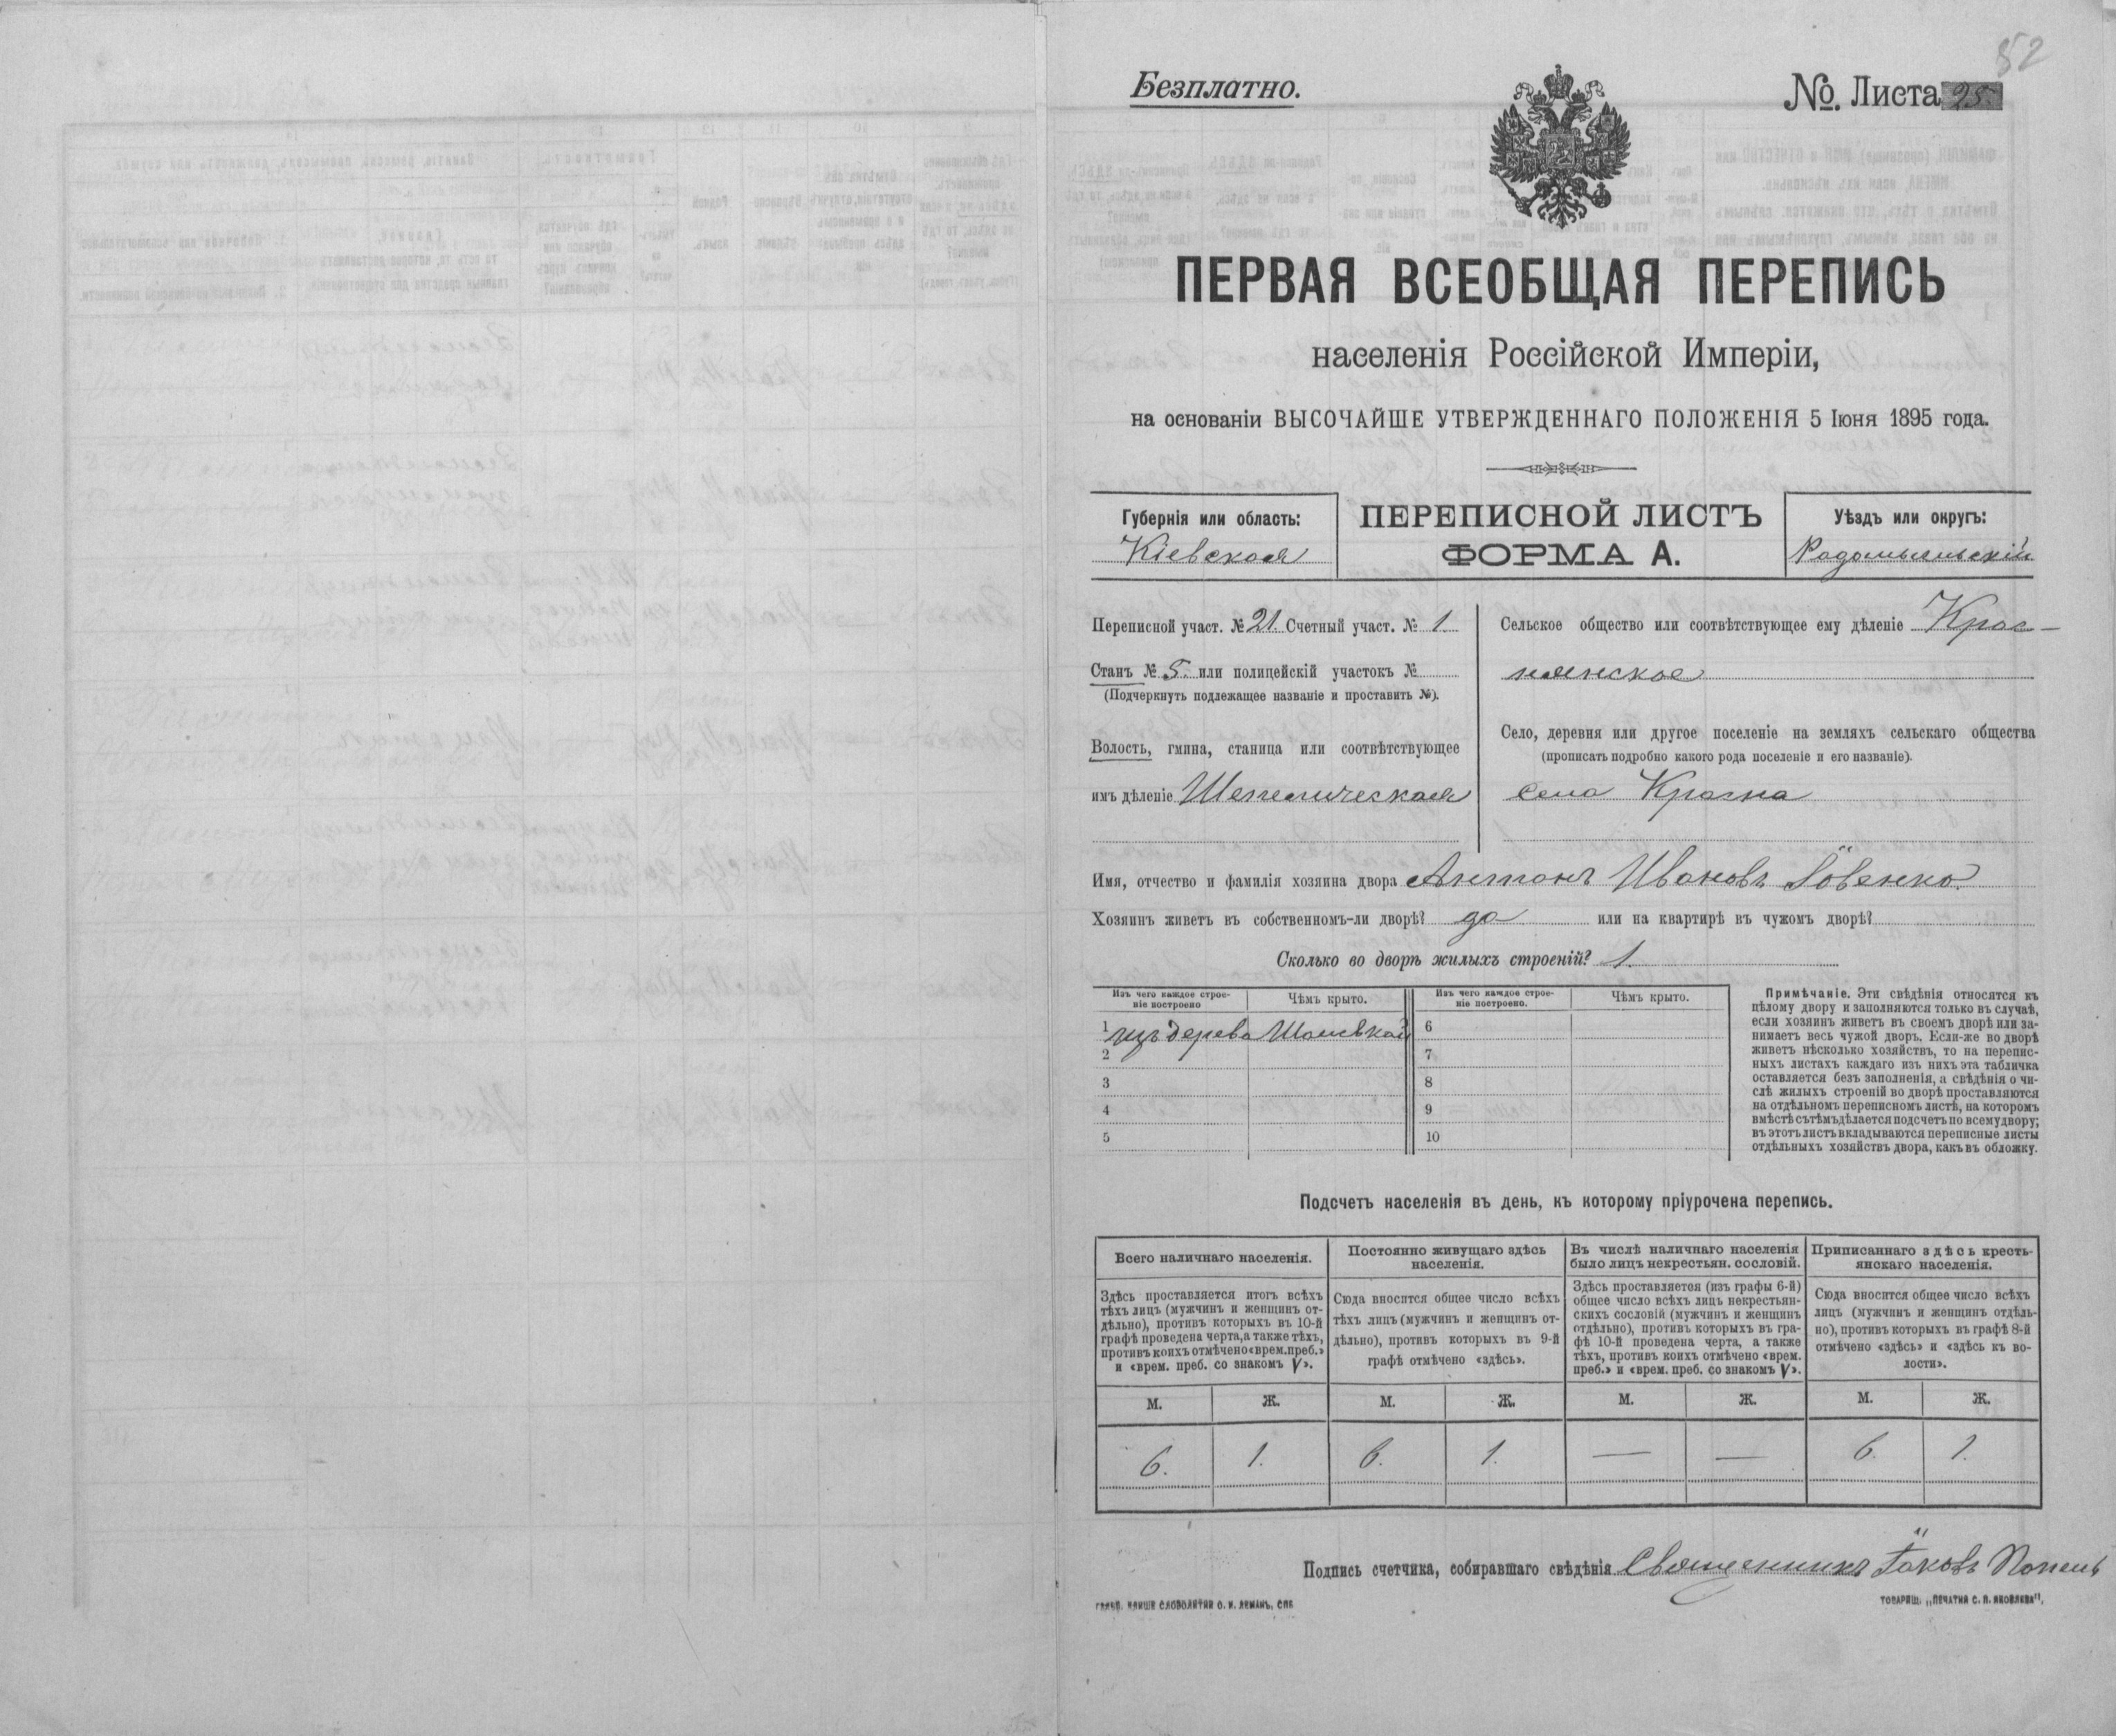 52
Безплатно.
№. Листа 25.
ПЕРВАЯ ВСЕОБЩАЯ ПЕРЕПИСЬ
населенія Россійской Имперіи,
на основаніи ВЫСОЧАЙШЕ УТВЕРЖДЕННАГО ПОЛОЖЕНІЯ 5 Іюня 1895 года.
Губернія или область:
Кіевская
ПЕРЕПИСНОЙ ЛИСТЪ
ФОРМА А.
Уѣздъ или округъ:
Радомысльскій
Переписной участ. № 21. Счетный участ. № 1
Станъ № 5. или полицейскій участокъ №
(Подчеркнуть подлежащее названіе и проставить №).
Волость, гмина, станица или соотвѣтствующее
имъ дѣленіе Шепеличская
Сельское общество или соотвѣтствующее ему дѣленіе Крас-
нянское
Село, деревня или другое поселеніе на земляхъ сельскаго общества
(прописать подробно какого рода поселеніе и его названіе).
село Красна
Имя, отчество и фамилія хозяина двора Антонъ Ивановъ Іовенко.
Хозяинъ живетъ въ собственномъ-ли дворѣ? да или на квартирѣ въ чужомъ дворѣ?
Сколько во дворѣ жилыхъ строеній? 1.
Изъ чего каждое строе-
ніе построено
Чѣмъ крыто.
Изъ чего каждое строе-
ніе построено.
Чѣмъ крыто.
1 изъ дерева
2
3
4
5
6
7
8
9
10
Примѣчаніе. Эти свѣдѣнія относятся къ
цѣлому двору и заполняются только въ случаѣ,
если хозяинъ живетъ въ своемъ дворѣ или за-
нимаетъ весь чужой дворъ. Если-же во дворѣ
живетъ нѣсколько хозяйствъ, то на перепис-
ныхъ листахъ каждаго изъ нихъ эта табличка
оставляется безъ заполненія, а свѣдѣнія о чи-
слѣ жилыхъ строеній во дворѣ проставляются
на отдѣльномъ переписномъ листѣ, на которомъ
вмѣстѣ съ тѣмъ дѣлается подсчетъ по всему двору;
въ этотъ листъ вкладываются переписные листы
отдѣльныхъ хозяйствъ двора, какъ въ обложку.
Подсчетъ населенія въ день, къ которому пріурочена перепись.
Всего наличнаго населенія.
Здѣсь проставляется итогъ всѣхъ
тѣхъ лицъ (мужчинъ и женщинъ от-
дѣльно), противъ которыхъ въ 10-й
графѣ проведена черта, а также тѣхъ,
противъ коихъ отмѣчено «врем. преб.»
и «врем. преб. со знакомъ V».
Постоянно живущаго здѣсь
населенія.
Сюда вносится общее число всѣхъ
тѣхъ лицъ (мужчинъ и женщинъ от-
дѣльно), противъ которыхъ въ 9-й
графѣ отмѣчено «здѣсь».
Въ числѣ наличнаго населенія
было лицъ некрестьян. сословій.
Здѣсь проставляется (изъ графы 6-й)
общее число всѣхъ лицъ некрестьян-
скихъ сословій (мужчинъ и женщинъ
отдѣльно), противъ которыхъ въ гра-
фѣ 10-й проведена черта, а также
тѣхъ, противъ коихъ отмѣчено «врем.
преб.» и «врем. преб. со знакомъ V».
Приписаннаго здѣсь кресть-
янскаго населенія.
Сюда вносится общее число всѣхъ
лицъ (мужчинъ и женщинъ отдѣль-
но), противъ которыхъ въ графѣ 8-й
отмѣчено «здѣсь» и «здѣсь къ во-
лости».
М. Ж. М. Ж. М. Ж. М. Ж.
6. 1. 6. 1. — — 6. 1.
Подпись счетчика, собиравшаго свѣдѣнія Священникъ Іаковъ
ГАЛЬВ. КЛИШЕ СЛОВОЛИТНИ О. И. ЛЕМАНЪ, СПБ
ТОВАРИЩ. „ПЕЧАТНЯ С. П. ЯКОВЛЕВА".